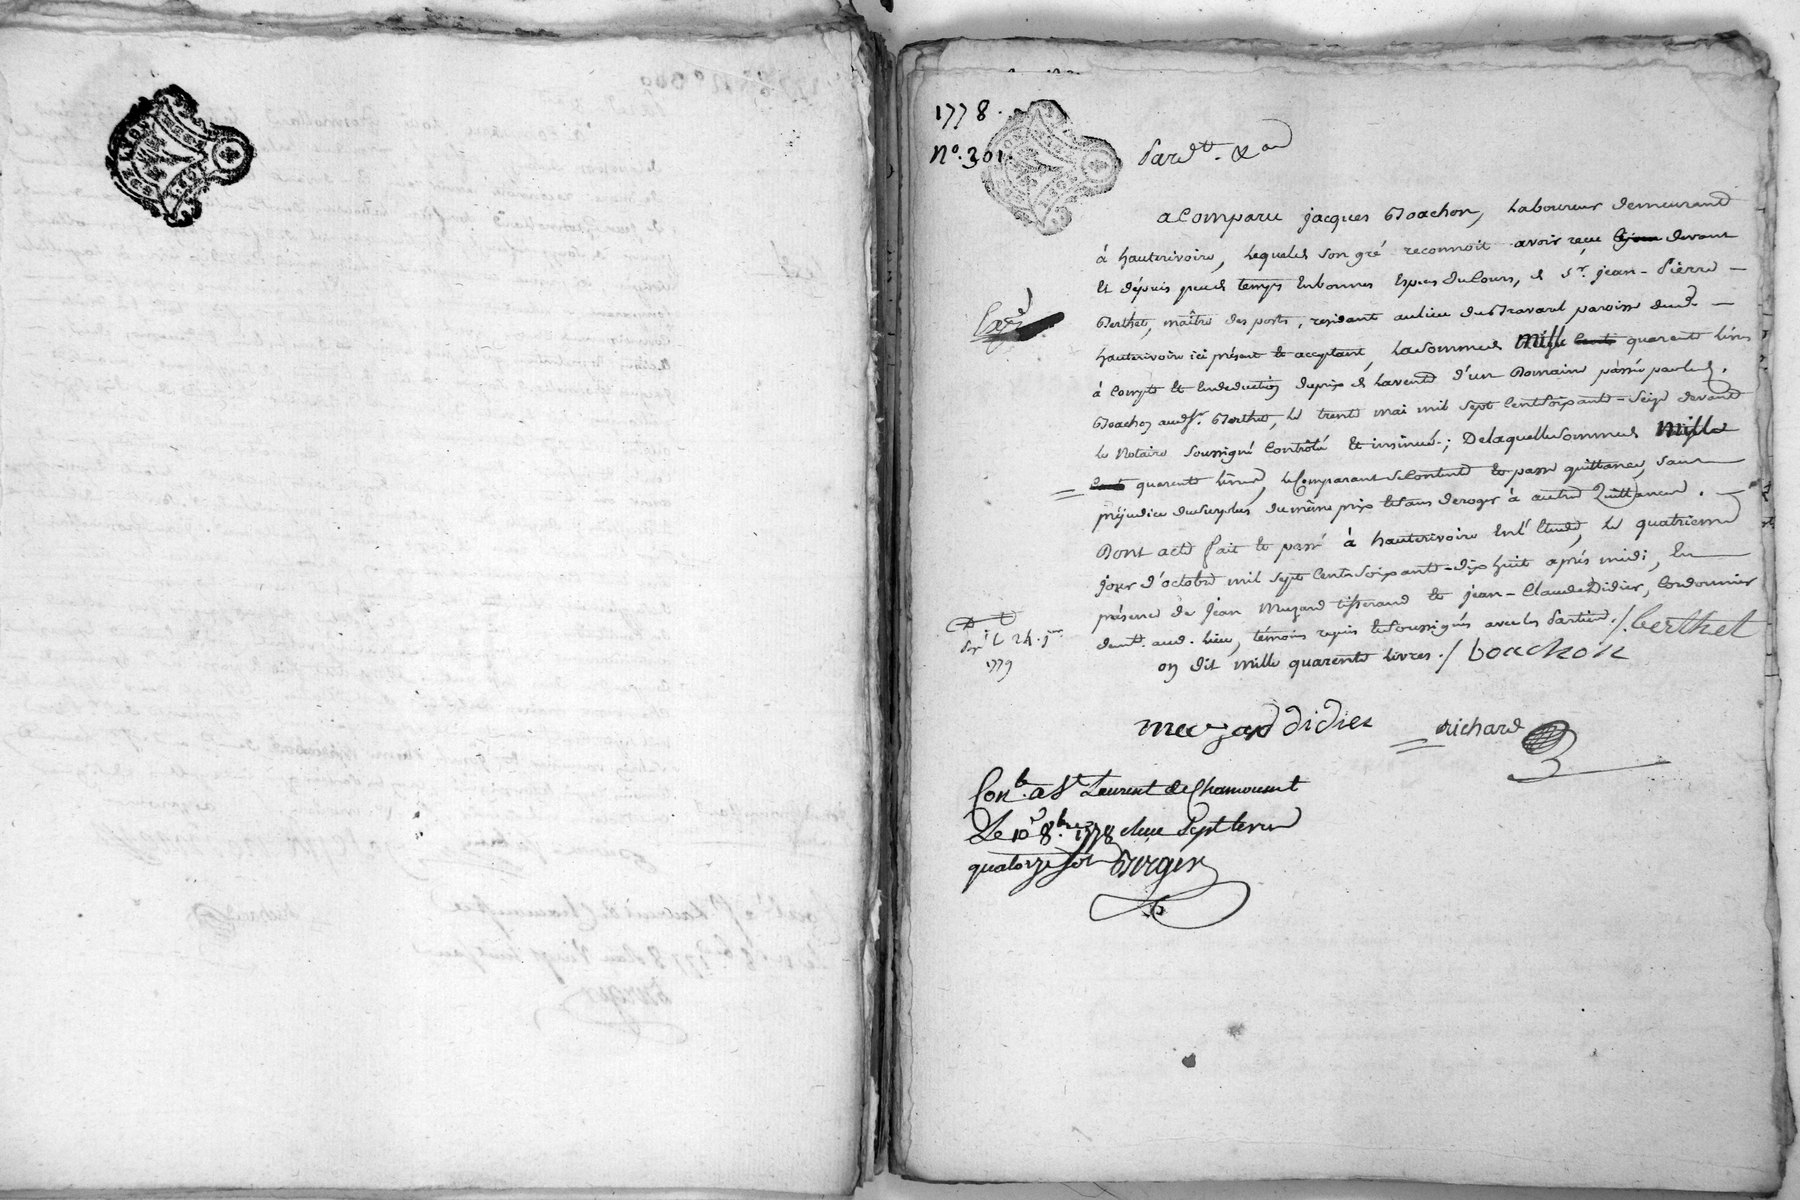 1778.
N°. 301.
Pardt. &a
a Comparu jacques Boachon, Laboureur demeurand
à hauterivoire, Lequel de son gré reconnoit avoir reçu devant
Et dépuis peu de temps En bonnes Espèces du Cours, de Sr. jean-Pierre
Berthet, maître des posts, residant au lieu du Bravard paroisse dud.
hauterivoire ici présent Et acceptant, La Somme de mille quarente Livres
à Compte Et En deduction du prix de La vente d'un Domaine passée par led.
Boachon aud. Sr. Berthet, Le trente mai mil Sept Cent Soixante-Seize devand
Le Notaire Soussigné Contrôlé Et insinué; De laquelle Somme de mille
quarente Livres, Le Comparant Se Contente Et passe quittance, Sans
préjudice du Surplus du même prix Et Sans deroger à autres Quittances.
Dont acte fait Et passé à hauterivoire En l'Etude, Le quatrieme
jour d'octobre mil Sept Cent Soixante-dix huit après midi, En
présence de Jean Muzard tisserand Et jean-Claude Didier, Cordonnier
demt. aud. Lieu, témoins requis Et Soussignés avec les Parties ./. berthet
on dit mille quarente Livres ./ boachon
24. jer
1779
meuzard didier richard
Conlé. a St Laurent de Chamousset
Le 10 8bre 1778 Sept livres
quatorze sols Burger